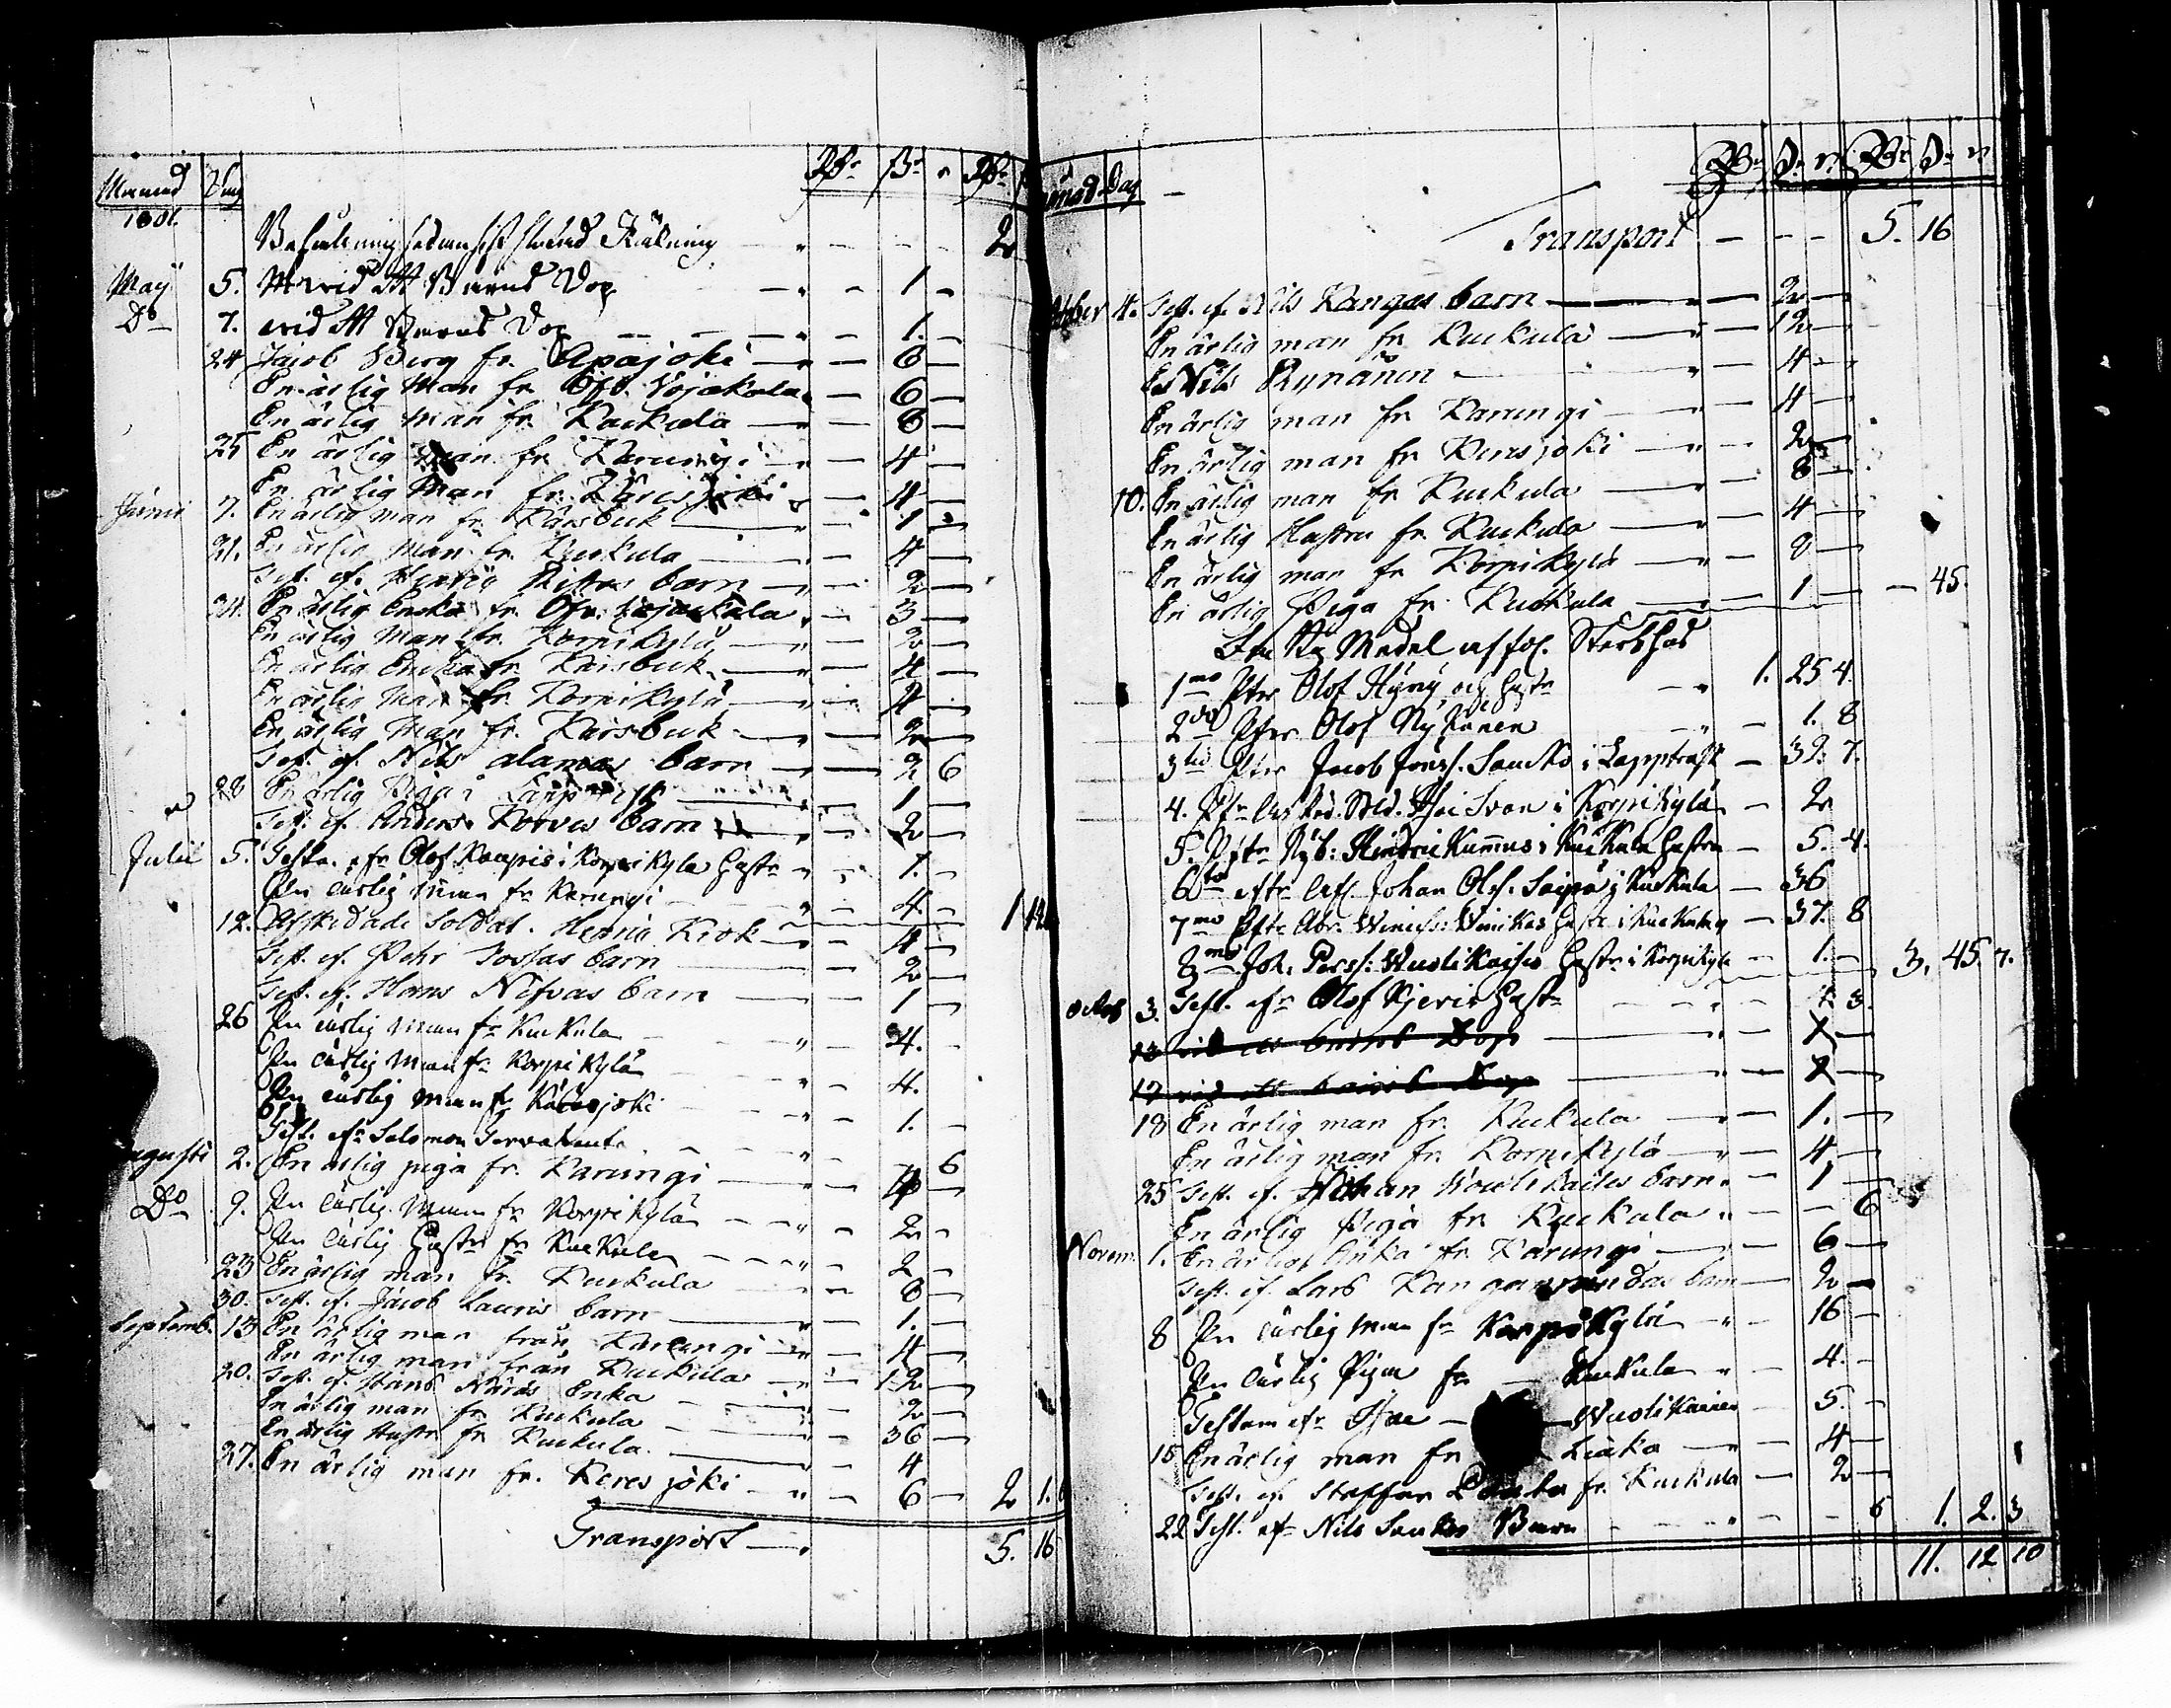 Månad Dag Rdr ß r Rdr
1801.
Behållning sedan sist slutad Räkning - - - 2
Maij 5. vid Ett Barns Dop - 1 -
Do 7. vid Ett Barns Dop - 1. -
24 Jacob Berg fr. Apajoki - 6 -
En ärlig Man fr. Öfv. Vojakala - 6 -
En ärlig man fr. Kuckula - 6 -
25 En ärlig man fr. Karungi - 4 -
En ärlig Man fr. Käresjoki - 4 -
Junii 7. En ärlig man fr. Karsbuk - 1
21. En ärlig Man fr. Kuckula - 4 -
Test. ef. barn - 2 -
En ärlig Enka fr. Öfv. Wojackala - 3 -
En ärlig Man fr. Korpikylä - 2 -
En ärlig Enka fr. Karsbuk - 4 -
En ärlig Man fr. Korpikylä - 4 -
En ärlig Man fr. Karsbuk - 2 -
Test. ef. Nils alamas barn - 2 6
28 En ärlig Piga i - 1 -
Test. ef. Anders Korvas barn - 2 -
Julii 5. Testa. efr Olof Kaupis i Korpikyla Hustr - 1. -
En ärlig man fr Karungi - 4. -
12. Afskedade Soldat. Kiök - 4 -
Test. ef. Pehr barn - 2 -
Test. ef. Hans barn - 1
26 En ärlig man fr Kuckula - 4. -
En ärlig Man fr Korpikylä - 4.
En ärlig man fr Käresjoki - 1. -
Test. efr Salomon - 6
Augusti 2. En ärlig piga fr. Karungi - 4 -
Do 9. En ärlig Man fr Korpikylä - 2 -
En ärlig Hustr fr Kuckula - 2 -
23 En ärlig man fr. Kuckula - 8 -
30. Test. ef. Jacob Lauris barn - 1. -
Septemb. 13 En ärlig man från Karungi - 4 -
En ärlig man från Kuckula - 12 -
20. Test. ef. Hans Enka - 2 -
En ärlig man fr. Kuckula - 36 -
En ärlig Hustr. fr. Kuckula - 4
27. En ärlig man fr. Keresjoki - 6 - 2 1. 6
Transport - 5. 16
Månad Dag Rdr ß r Rdr ß r
Transport - - - 5. 16
4. Test. ef. Nils Kangas barn - 2 -
En ärlig man fr. Kuckula - 12 -
Nils Rynänen - 4 -
En ärlig man fr. Karungi - 4 -
En ärlig man fr. Keresjoki - 2 -
10. En ärlig man fr. Kuckula - 8 -
En ärlig Hustru fr. Kuckula - 4 -
En ärlig man fr. Korpikylä - 8 -
En ärlig Piga fr. Kuckula - 1 - 45.
Medel af föl. Sterbhus
1mo Efter Olof och Hustr - 1. 25 4.
2do Efter Olof Nykänen - 1. 8
3tio Efter Jacob Jönss. Saucko i Lappträsk - 32. 7.
4. Eftr Afsked. Sold. Svan i Korpikylä - 2
5. Eftr Nyb: Hindric Kummus i Kuckula Hustru - 5. 4.
6to eftr Afl. Johan Olofs. Saipa i Kuckula - 36
7mo Eftr Abr. Hustr i Kuckula - 37. 8
8mo Joh. Perss: Wuolikaises Hustr i Korpikyla - 1. - 3. 45. 7.
Octob 3. Test. efr Olof Hustr - 3.
13 vid ett barns Dop
17 vid ett barns Dop
18 En ärlig man fr. Kuckula - 1. -
En ärlig man fr. Korpikylä - 4 -
25 Test. ef. Johan barn - 1 -
En ärlig Piga fr. Kuckula - 6
Novem. 1. En ärlig Enka fr. Karungi - 6 -
Test. ef. Lars barn - 2 -
8 En ärlig Man fr Korpikylä - 16 -
En ärlig Piga fr - Kuckula - 4. -
Testam efr - Wuolikainen - 5. -
15 En ärlig man fr Liaka - 4 -
Test. ef. Staffan fr. Kuckula - 2 -
22 Test. efr Nils Sauckos Barn - 6 1. 2. 3
11. 12 10